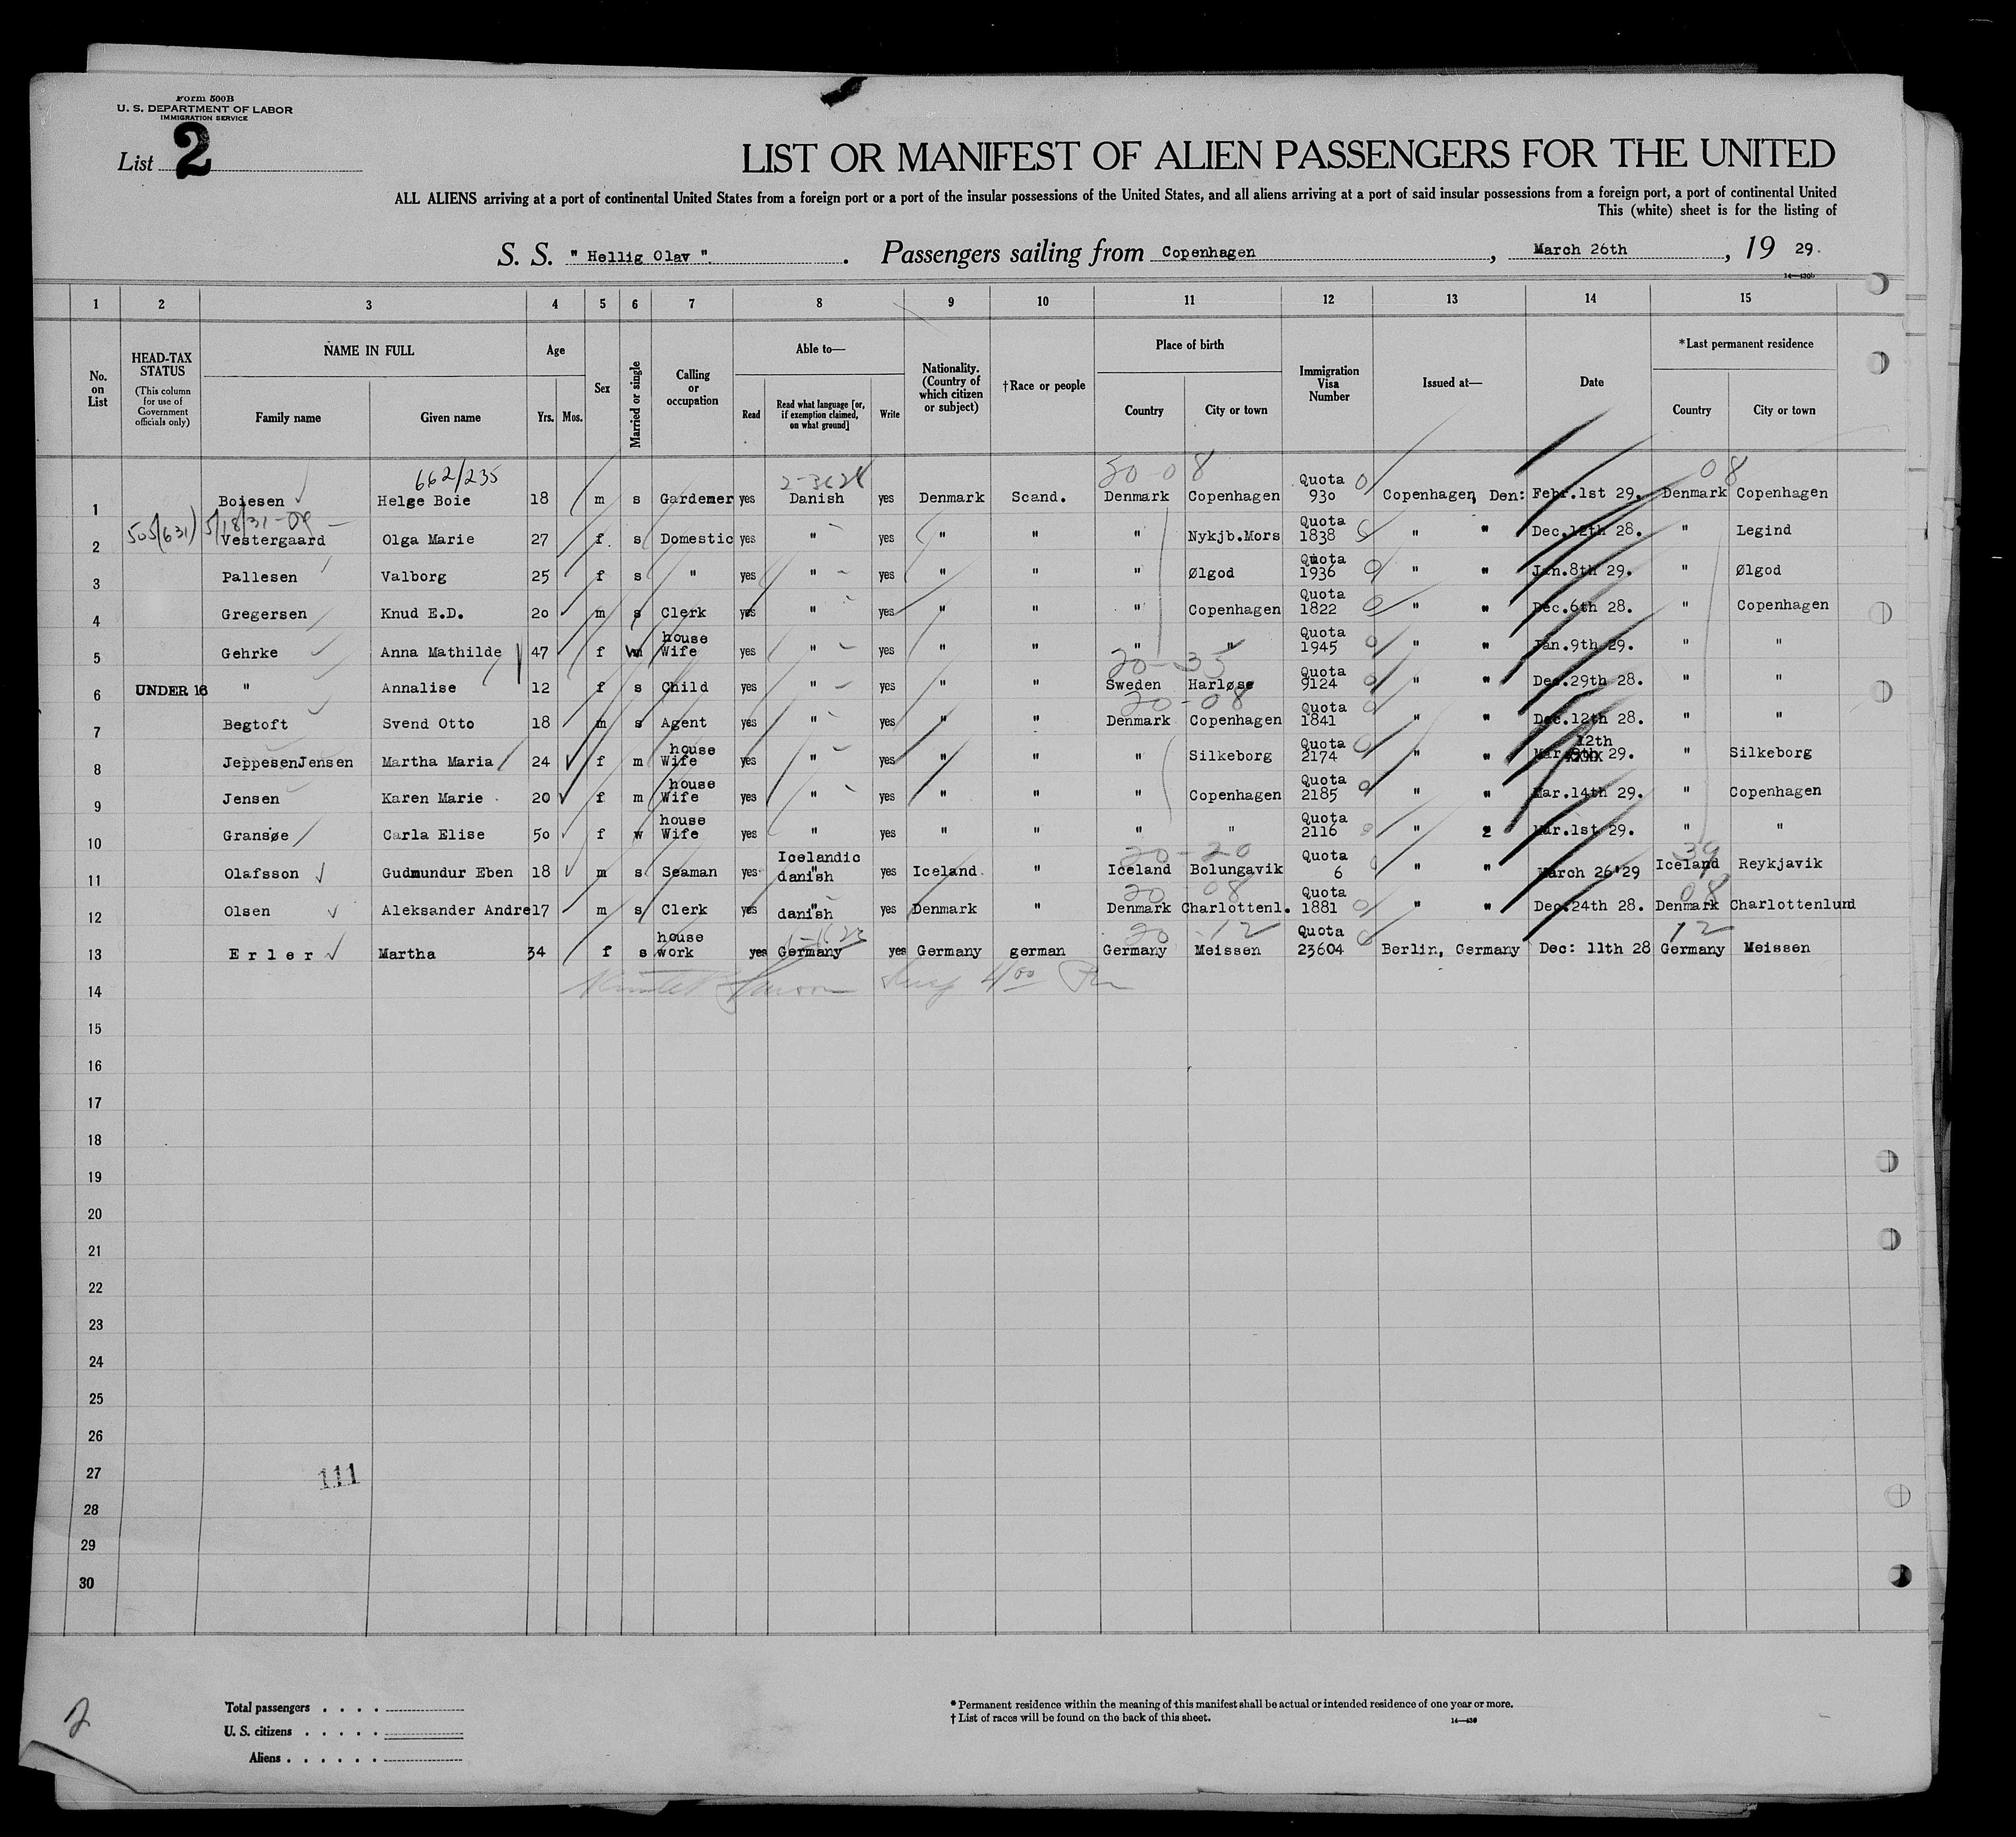 Form 500B
U. S. DEPARTMENT OF LABOR
IMMIGRATION SERVICE
List 2
LIST OR MANIFEST OF ALIEN PASSENGERS FOR THE UNITED
ALL ALIENS arriving at a port of continental United States from a foreign port or a port of the insular possessions of the United States, and all aliens arriving at a port of said insular possessions from a foreign port, a port of continental United
This (white) sheet is for the listing of
S. S. " Hellig Olav ". Passengers sailing from Copenhagen, March 26th, 19 29.
14—430b
1 2 3 4 5 6 7 8 9 10 11 12 13 14 15
No. on List
HEAD-TAX STATUS
(This column for use of Government officials only)
NAME IN FULL
Family name Given name
Age
Yrs. Mos.
Sex
Married or single
Calling or occupation
Able to—
Read
Read what language [or, if exemption claimed, on what ground]
Write
Nationality. (Country of which citizen or subject)
†Race or people
Place of birth
Country City or town
Immigration Visa Number
Issued at—
Date
*Last permanent residence
Country City or town
662/235 08
1 Boiesen Helge Boie 18 m s Gardener yes Danish yes Denmark Scand. Denmark Copenhagen Quota 930 Copenhagen, Den: Febr.1st 29. Denmark Copenhagen
505(631) 5/18/31-
2 Vestergaard Olga Marie 27 f. s Domestic yes " yes " " " Nykjb.Mors Quota 1838 " " Dec.12th 28. " Legind
3 Pallesen Valborg 25 f s " yes " yes " " " Ølgod Quota 1936 " " Jan.8th 29. " Ølgod
4 Gregersen Knud E.D. 20 m s Clerk yes " yes " " " Copenhagen Quota 1822 " " Dec.6th 28. " Copenhagen
5 Gehrke Anna Mathilde 47 f w house Wife yes " yes " " " " Quota 1945 " " Jan.9th 29. " "
20-35
6 UNDER 16 " Annalise 12 f s Child yes " yes " " Sweden Harløse Quota 9124 " " Dec.29th 28. " "
20-08
7 Begtoft Svend Otto 18 m s Agent yes " yes " " Denmark Copenhagen Quota 1841 " " Dec.12th 28. " "
8 JeppesenJensen Martha Maria 24 f m house Wife yes " yes " " " Silkeborg Quota 2174 " " Mar. 12th 29. " Silkeborg
9 Jensen Karen Marie 20 f m house Wife yes " yes " " " Copenhagen Quota 2185 " " Mar.14th 29. " Copenhagen
10 Gransøe Carla Elise 50 f w house Wife yes " yes " " " " Quota 2116 " 2 Mar.1st 29. " "
20-20 39
11 Olafsson Gudmundur Eben 18 m s Seaman yes Icelandic danish yes Iceland. " Iceland Bolungavik Quota 6 " " March 26'29 Iceland Reykjavik
20-08 08
12 Olsen Aleksander Andre 17 m s Clerk yes danish yes Denmark " Denmark Charlottenl. Quota 1881 " " Dec.24th 28. Denmark Charlottenlund
20 12 12
13 Erler Martha 34 f s house work yes Germany yes Germany german Germany Meissen Quota 23604 Berlin, Germany Dec: 11th 28 Germany Meissen
14
15
16
17
18
19
20
21
22
23
24
25
26
27
111
28
29
30
2
Total passengers . . . .
U. S. citizens . . . . .
Aliens . . . . . .
* Permanent residence within the meaning of this manifest shall be actual or intended residence of one year or more.
† List of races will be found on the back of this sheet.
14—430